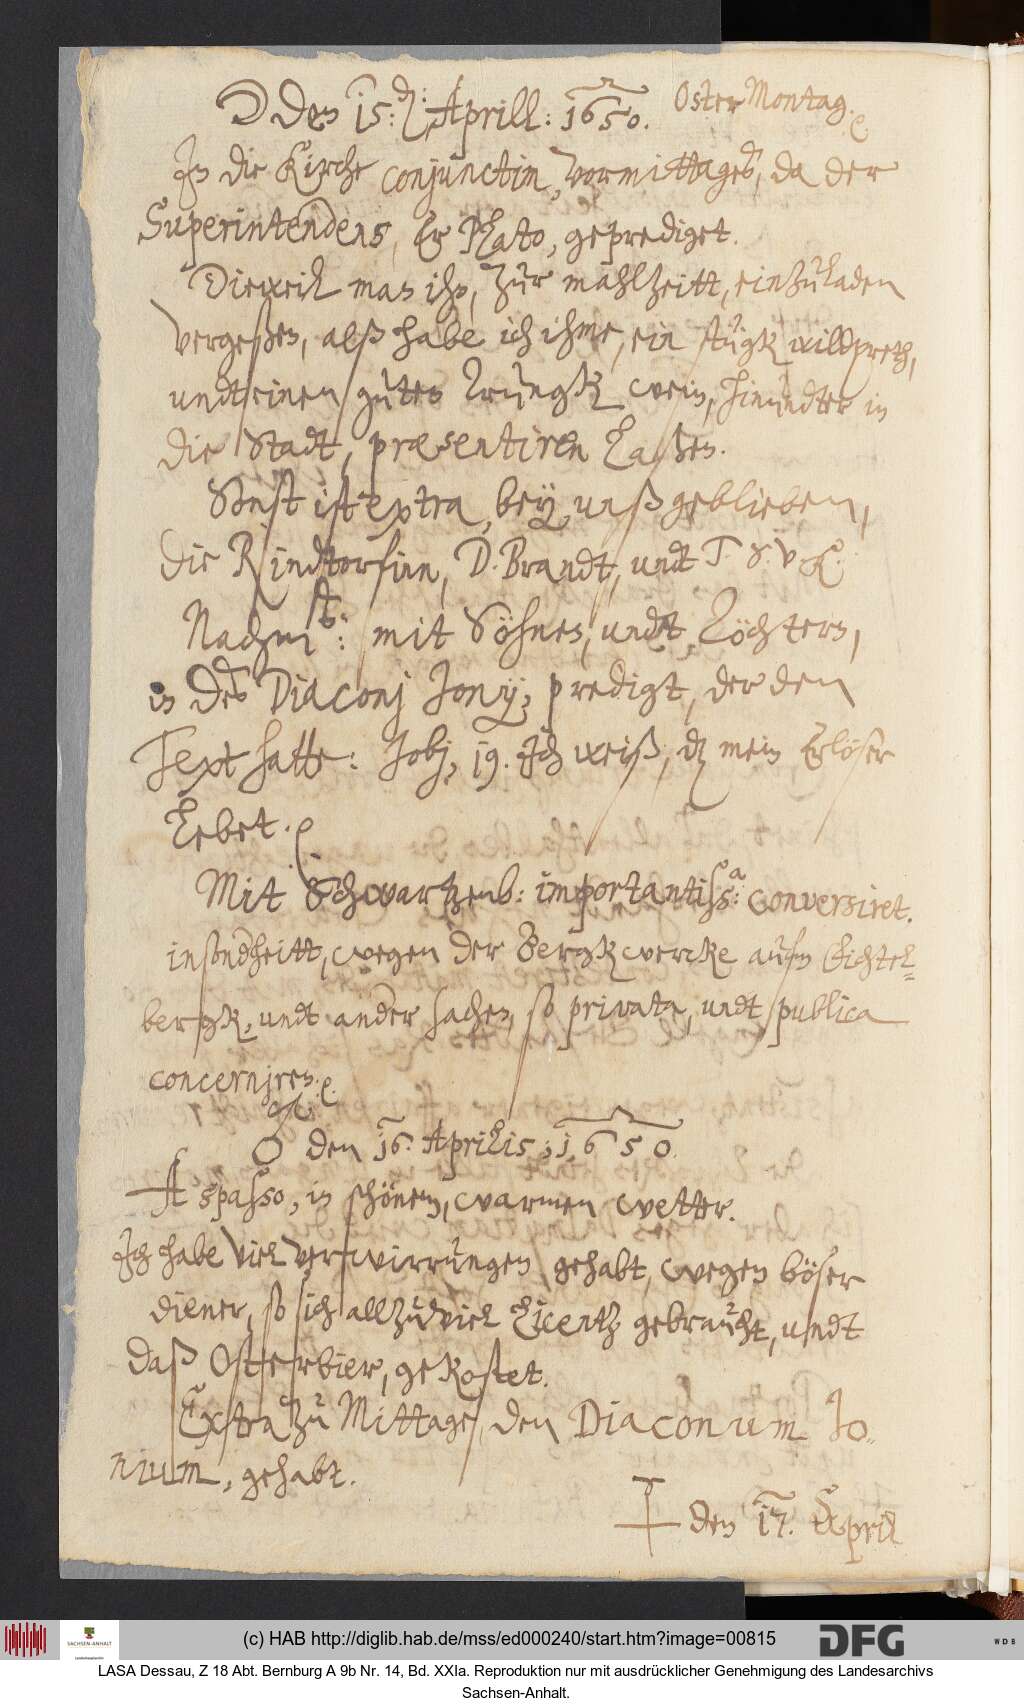 ☽ den 15: d: Aprill: 1650. Oster Montag.
In die Kirche conjunctim, vormittages, da der
Superintendens, Er Plato, geprediget.
Dieweil man ihn, zur mahlzeitt, einzuladen
vergeßen, alß habe ich ihme, ein stügk wildpreth,
undt einen guten Trungk wein, hinundter in
die Stadt, præsentiren laßen.
Sonst ist extra, bey unß geblieben,
die Rindtorfinn, D. Brandt, undt
Nachmitt: mit Söhnen, undt Töchtern,
in des Diaconj Jonij, predigt, der den
Text hatte: Jobj, 19. Ich weiß, dz mein Erlöser
lebet.
Mit Schwartzenb: importantiss:a conversiret.
insonderheitt, wegen der Bergkwercke aufm Fichtel=
bergk, undt ander sachen, so privata, undt publica
concerniren.
♂ den 16. Aprilis; 1650.
A spasso, in schönem, warmen wetter.
Ich habe viel verwirrungen gehabt, wegen böser
diener, so sich allzuviel licentz gebraucht, undt
daß Osterbier, gekostet.
Extra zu Mittage, den Diaconum Jo=
nium, gehabt.
den 17. April
(c) HAB http://diglib.hab.de/mss/ed000240/start.htm?image=00815
SACHSEN-ANHALT
DFG
WDB
LASA Dessau, Z 18 Abt. Bernburg A 9b Nr. 14, Bd. XXIa. Reproduktion nur mit ausdrücklicher Genehmigung des Landesarchivs
Sachsen-Anhalt.